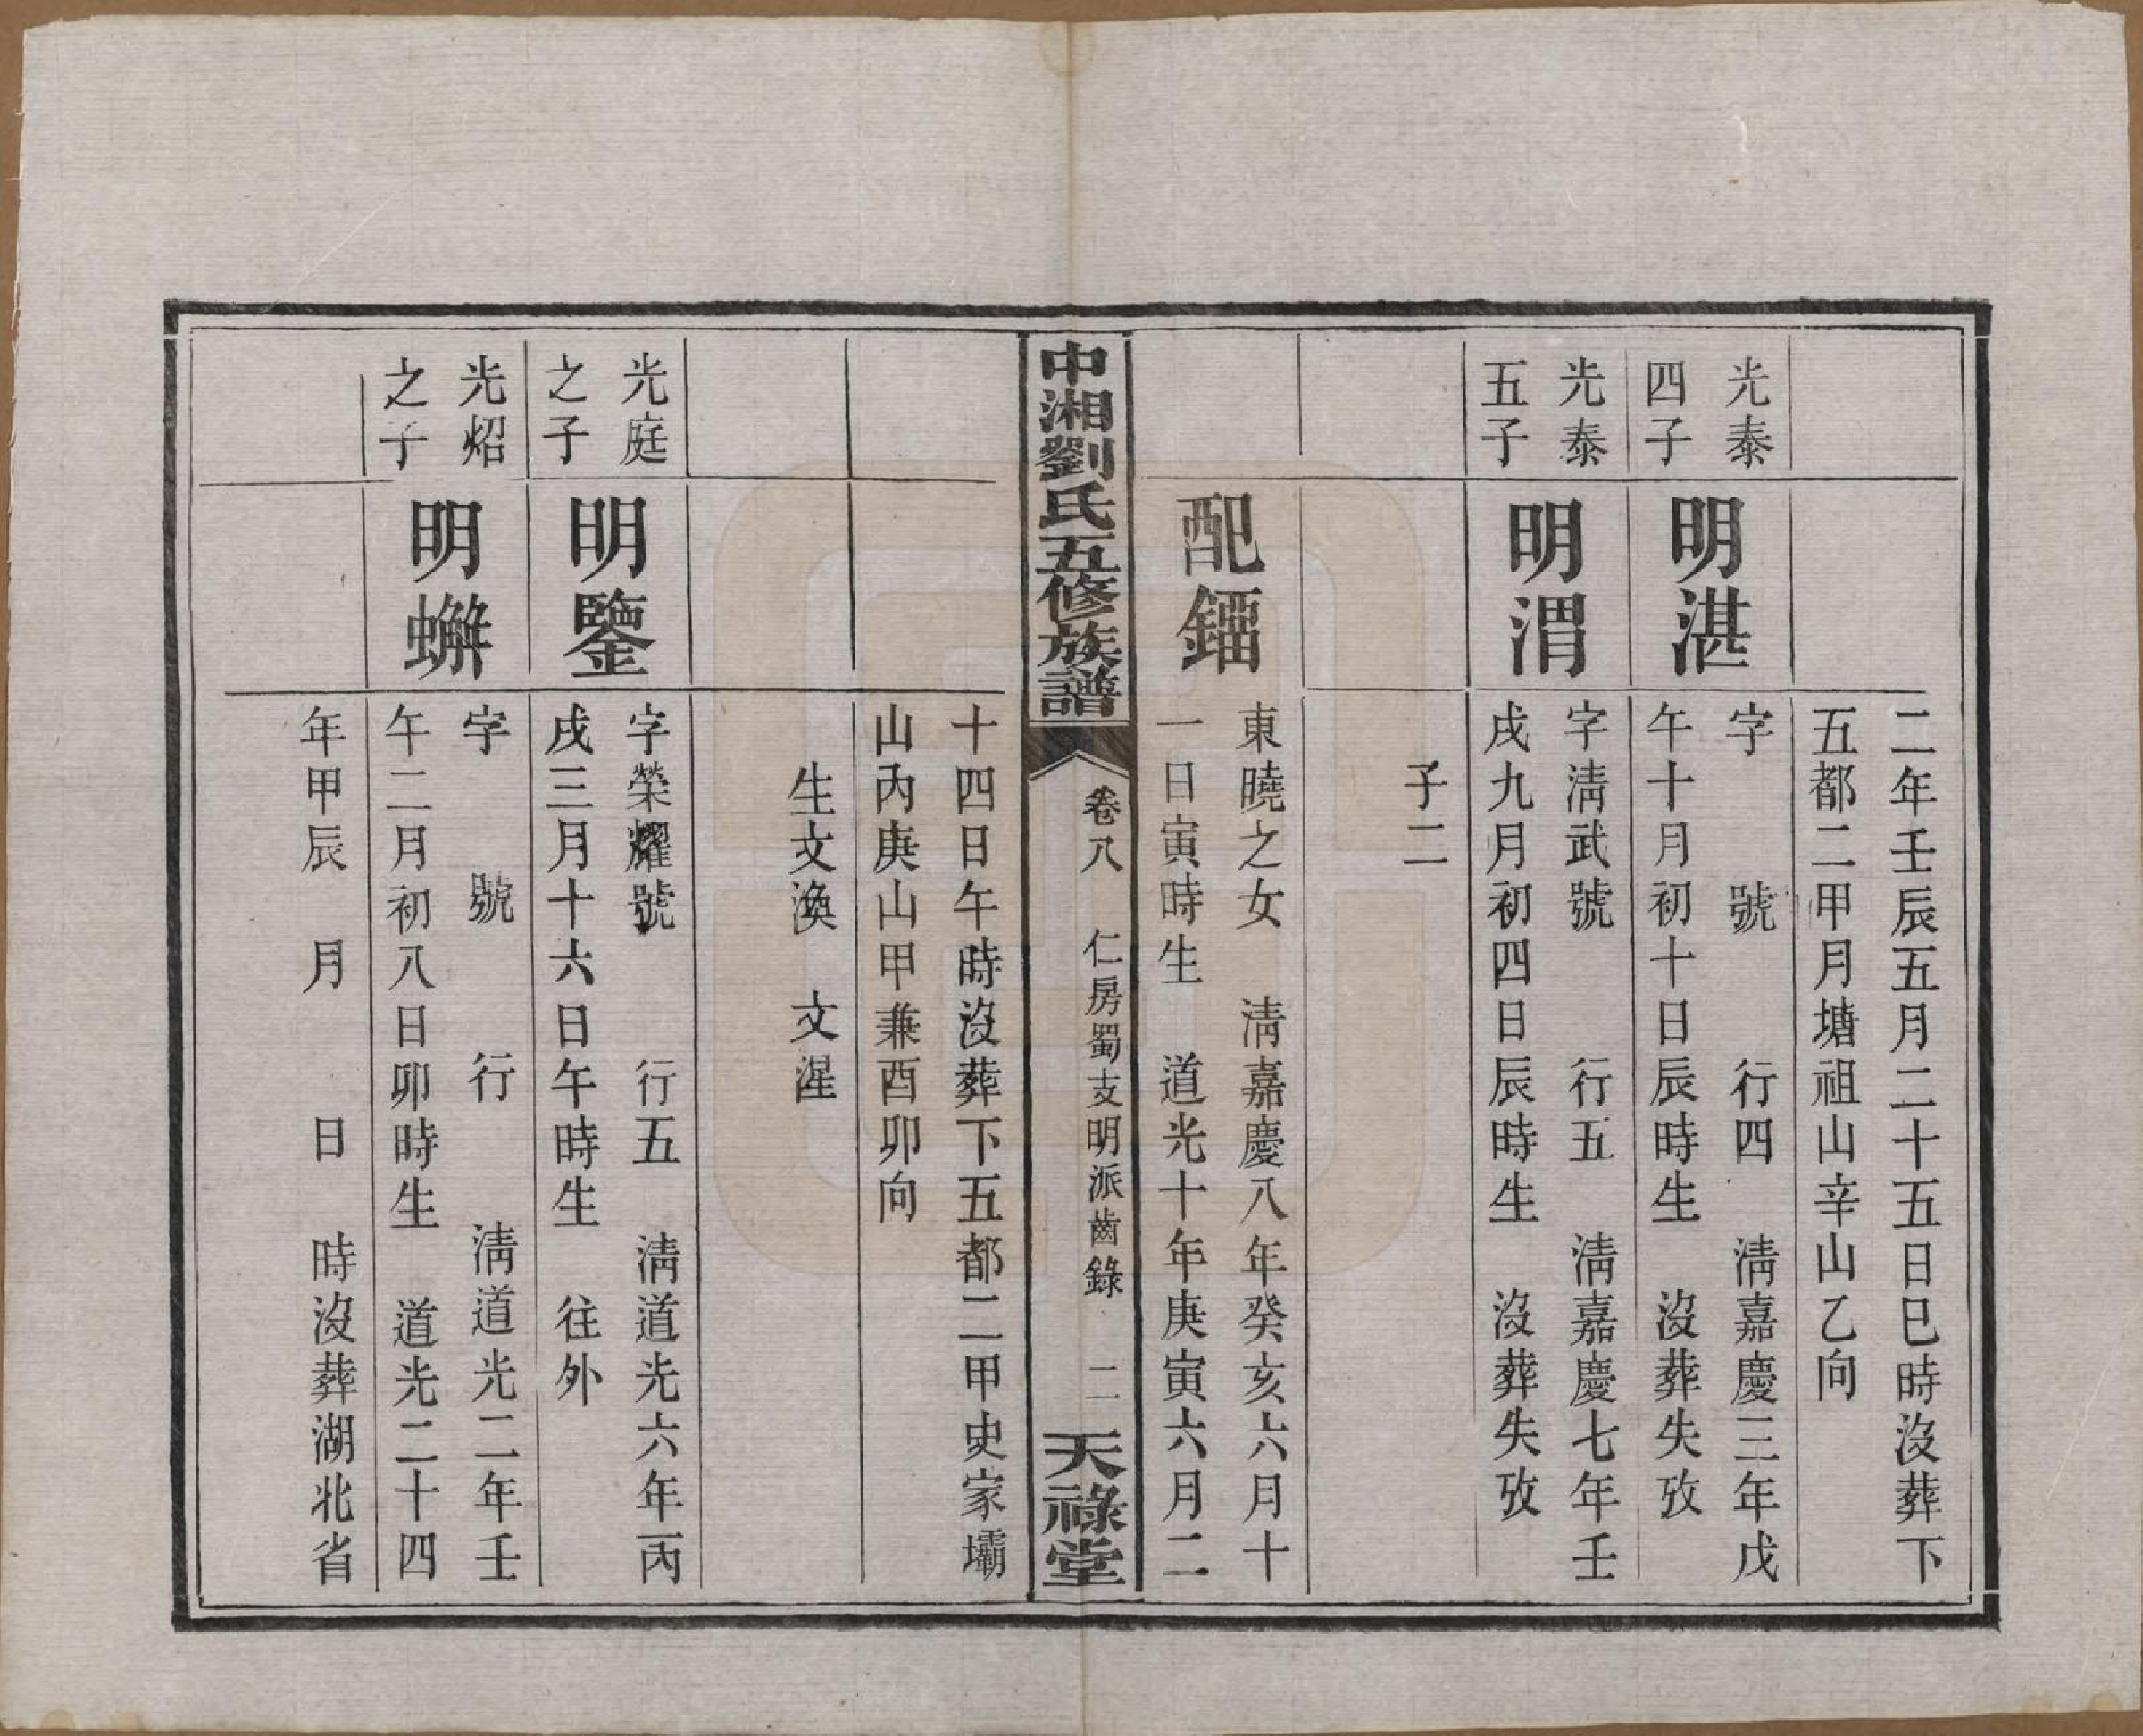 二年壬辰五月二十五日巳時沒葬下
五都二甲月塘祖山辛山乙向
光泰
四子
明湛
字　號　行四　淸嘉慶三年戊
午十月初十日辰時生　沒葬失攷
光泰
五子
明渭
字淸武號　行五　淸嘉慶七年壬
戌九月初四日辰時生　沒葬失攷
子二
配鎦
東曉之女　淸嘉慶八年癸亥六月十
一日寅時生　道光十年庚寅六月二
中湘劉氏五修族譜
卷八　仁房蜀支明派齒錄　二
天祿堂
十四日午時沒葬下五都二甲史家壩
山內庚山甲兼酉卯向
生文渙　文湦
光庭
之子
明鑒
字榮耀號　行五　淸道光六年丙
戌三月十六日午時生　往外
光炤
之子
明
字　號　行　淸道光二年壬
午二月初八日卯時生　道光二十四
年甲辰　月　日　時沒葬湖北省